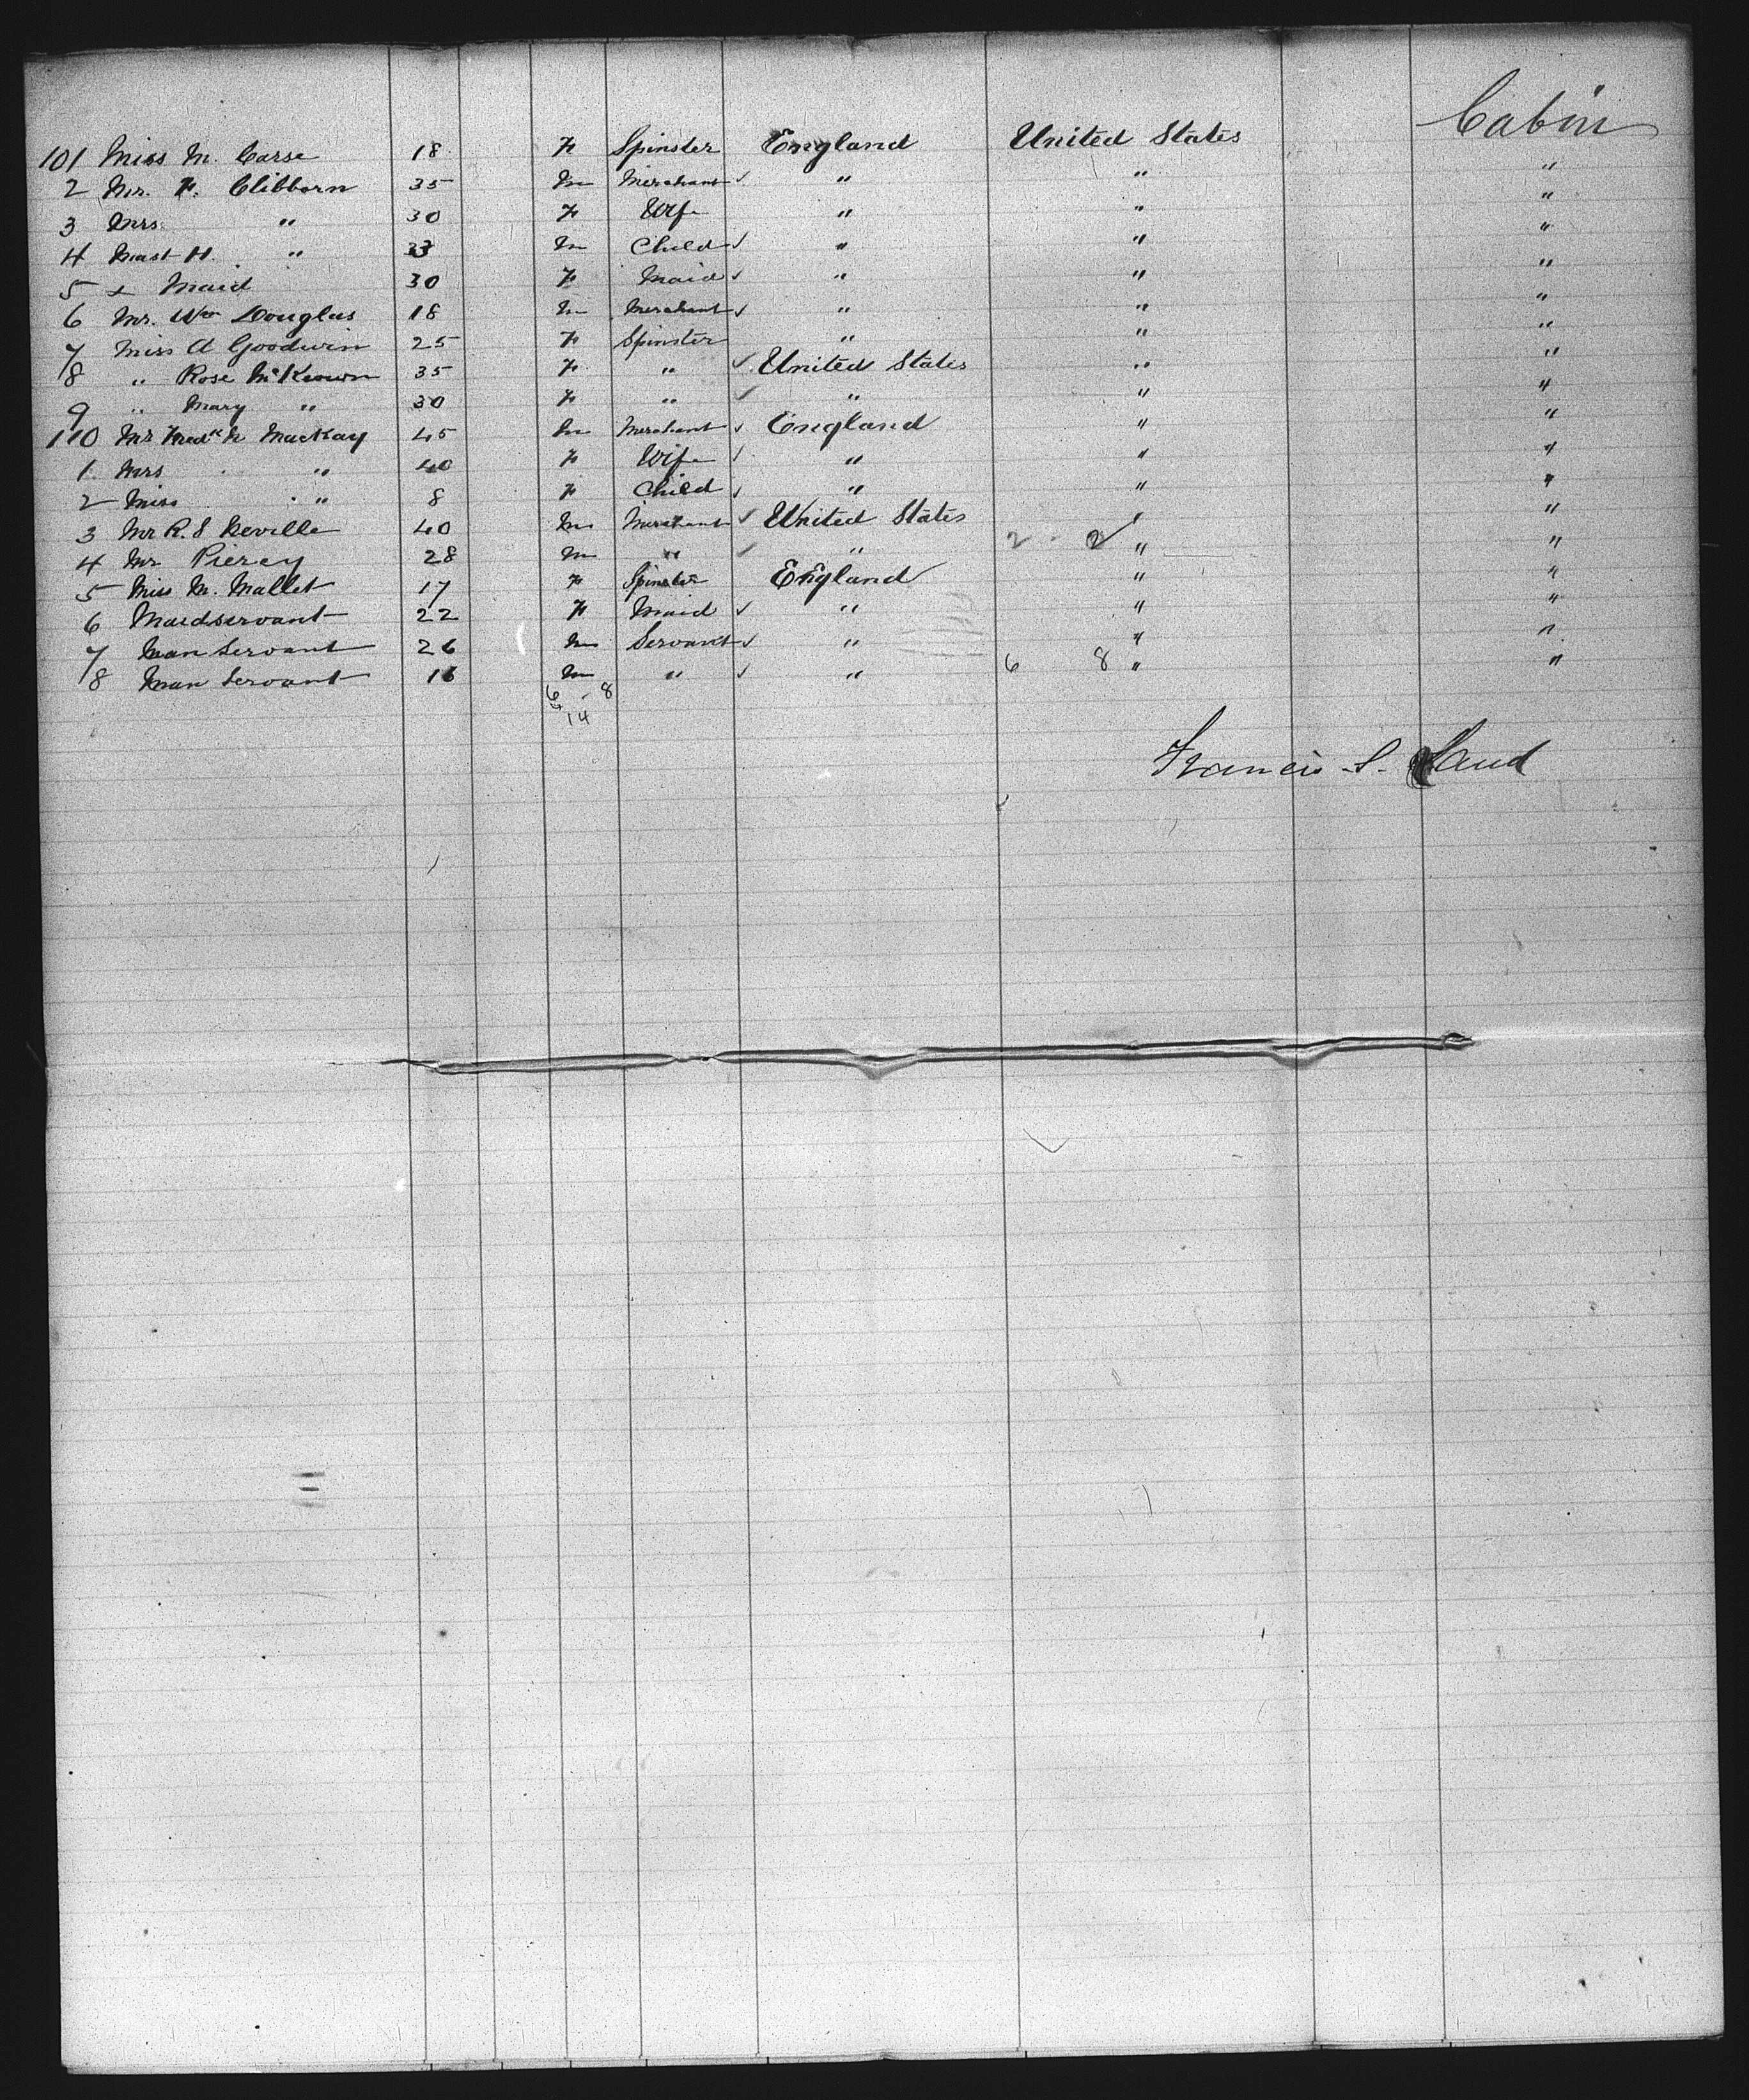 Cabin
101 Miss M. Carse 18 F Spinster England United States
2 Mr. F. Clibborn 35 M Merchant ✓ " " "
3 Mrs. " 30 F Wife " " "
4 Mast H. " M Child ✓ " " "
5 + Maid 30 F Maid ✓ " " "
6 Mr. Wm Douglas 18 M Merchant ✓ " " "
7 Miss A Goodwin 25 F Spinster " " "
8 " Rose McKeown 35 F " ✓ United States " "
9 " Mary " 30 F " ✓ " " "
110 Mr Fredk N MacKay 45 M Merchant ✓ England " "
1 Mrs " 40 F Wife ✓ " " "
2 Miss " 8 F Child ✓ " " "
3 Mr R. S Neville 40 M Merchant ✓ United States " "
4 Mr Piercy 28 M " ✓ " 2 2 " "
5 Miss M. Mallet 17 F Spinster England " "
6 Maidservant 22 F Maid ✓ " " "
7 Man Servant 26 M Servant ✓ " " "
8 Man Servant 16 M " ✓ " 6 8 " "
6 - 8
14
Francis S. Land